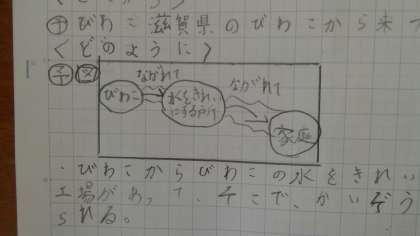 ㋑びわこ 滋賀県のびわこから来
〈どのように〉
㋑図
ながれて
ながれて
びわこ
水をきれい
にする所
家庭
・びわこからびわこの水をきれい
工場があって、そこで、かいぞう
される。